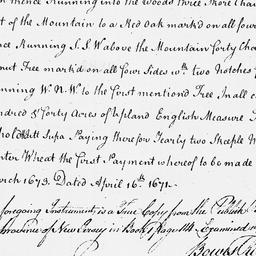 thence Running into the woods three More Chai
t of the Mountain to a Red Oak mark'd on all four
nce Running S.S.W above the Mountain forty Cha
nut Tree mark'd on all four Sides wth two Notches
unning W.N.W to the first mentioned Tree In all c
undred & forty Acres of Upland English Measure
hold Supa. Paying therefor Yearly two Skeeple
nter Wheat the first Payment whereof to be made
arch 1673. Dated April 16th 1671.
foregoing Instrument is a True Copy from the Publick
Province of New Jersey in Book 1 Page 114. Examined